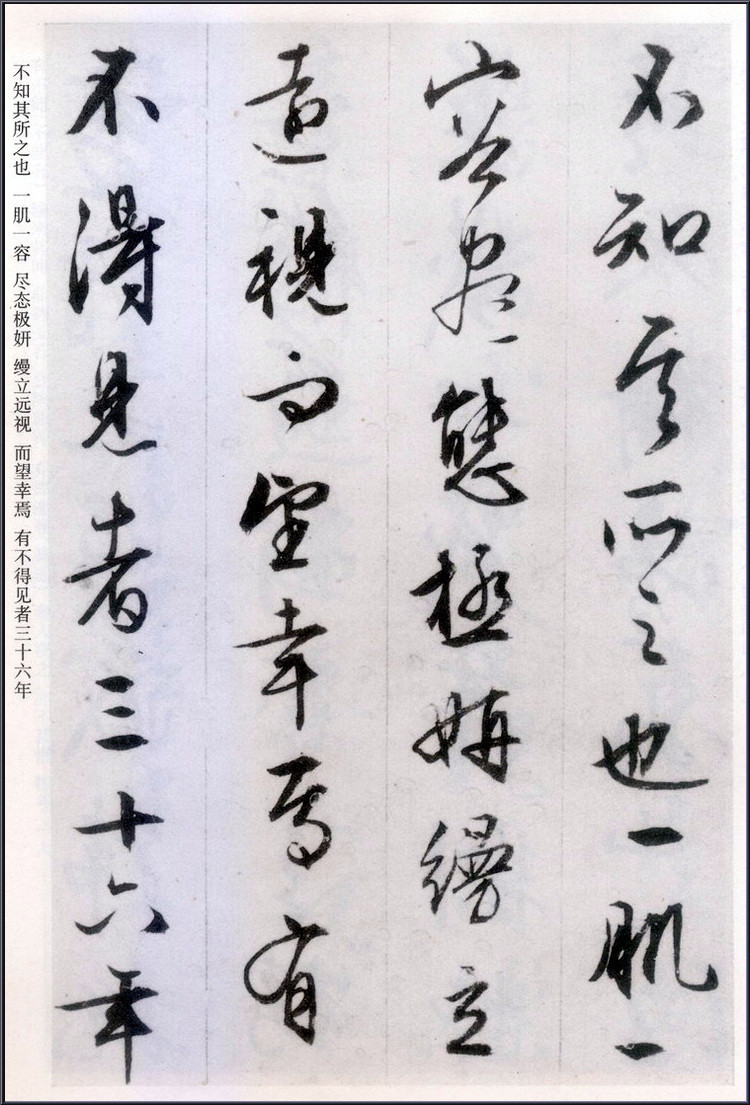 不知其所之也一肌一
容盡態極妍縵立
遠視而望幸焉有
不得見者三十六年
不知其所之也 一肌一容 尽态极妍 缦立远视 而望幸焉 有不得见者三十六年